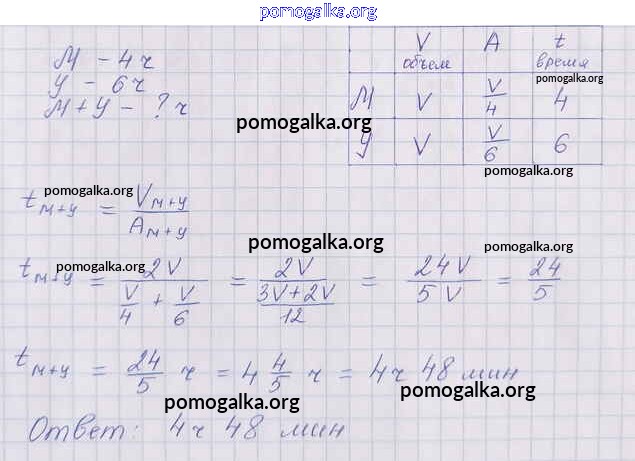 pomogalka.org
М - 4ч
У - 6ч
М+У - ? ч
V объем A t время
pomogalka.org
М V V/4 4
pomogalka.org
У V V/6 6
pomogalka.org
pomogalka.org
t м+у = V м+у / A м+у
pomogalka.org
pomogalka.org
pomogalka.org
t м+у = 2V / (V/4 + V/6) = 2V / ((3V+2V)/12) = 24V / 5V = 24/5
t м+у = 24/5 ч = 4 4/5 ч = 4ч 48 мин
pomogalka.org
pomogalka.org
Ответ: 4ч 48 мин